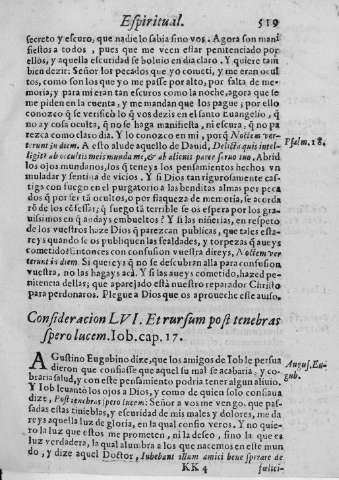 Espiritual. 519
secreto y escuro, que nadie lo sabia sino vos. Agora son mani
fiestos a todos, pues que me veen estar penitenciado por
ellos, y aquella escuridad se boluio en dia claro. Y quiere tam
bien dezir: Señor los pecados que yo cometi, y me eran ocul
tos, como son los que yo se me passaron por alto, por falta de me-
moria, y para mi eran tan escuros como la noche, agora que se
me piden en la cuenta, y me mandan que los pague; por ello
conozco q̃ se verifica lo q̃ vos dezis en el santo Euangelio, q̃
no ay cosa oculta, q̃ no se haga manifiesta, ni escura, q̃ no pa
rezca como claro dia. Y lo conozco en mi, porq̃ Noctem ver-
terunt in diem. A esto alude aquello de Dauid, Delicta quis intel-
Psalm. 18.
ligit? ab occultis meis munda me, & ab alienis parce seruo tuo. Abrid
los ojos mundanos, los q̃ teneys los pensamientos hechos vn
muladar y sentina de vicios. Y si Dios tan rigurosamente cas-
tiga con fuego en el purgatorio a las benditas almas por peca
dos q̃ por ser tã ocultos, o por flaqueza de memoria, se acorda
rõ de los cõfessar; q̃ fuego tã terrible se os espera por los gra-
uissimos en q̃ andays embueltos? Y si las niñerias, en respeto
de los vuestros haze Dios q̃ parezcan publicas, que tales esta-
reys quando se os publiquen las fealdades, y torpezas q̃ aueys
cometido? Entonces con confusion vuestra direys, Noctem ver-
terunt in diem. Si quereys q̃ no se descubran alla para confusion
vuestra, no las hagays acà. Y si las aueys cometido, hazed pe-
nitencia dellas; que aparejado està nuestro reparador Christo
para perdonaros. Plegue a Dios que os aproueche este auiso.
Consideracion LVI. Et rursum post tenebras
spero lucem. Iob. cap. 17.
AGustino Eugobino dize, que los amigos de Iob le persua
August. Eu-
gub.
dieron que confiasse que aquel su mal se acabaria, y co-
braria salud, y con este pensamiento podria tener algun aliuio.
Y Iob leuantò los ojos a Dios, y como de quien solo confiaua
dize, Post tenebras spero lucem: Señor a vos me vengo. que pas-
sadas estas tinieblas, y escuridad de mis males y dolores, me da
reys aquella luz de gloria, en la qual confio veros. Y no quie-
ro la luz que estos me prometen, ni la desseo, sino la que es
luz verdadera, la qual alumbra a los que nacemos en este mun
do, y dize aquel Doctor, Iubebant illum amici bene sperare de
KK 4 felici-